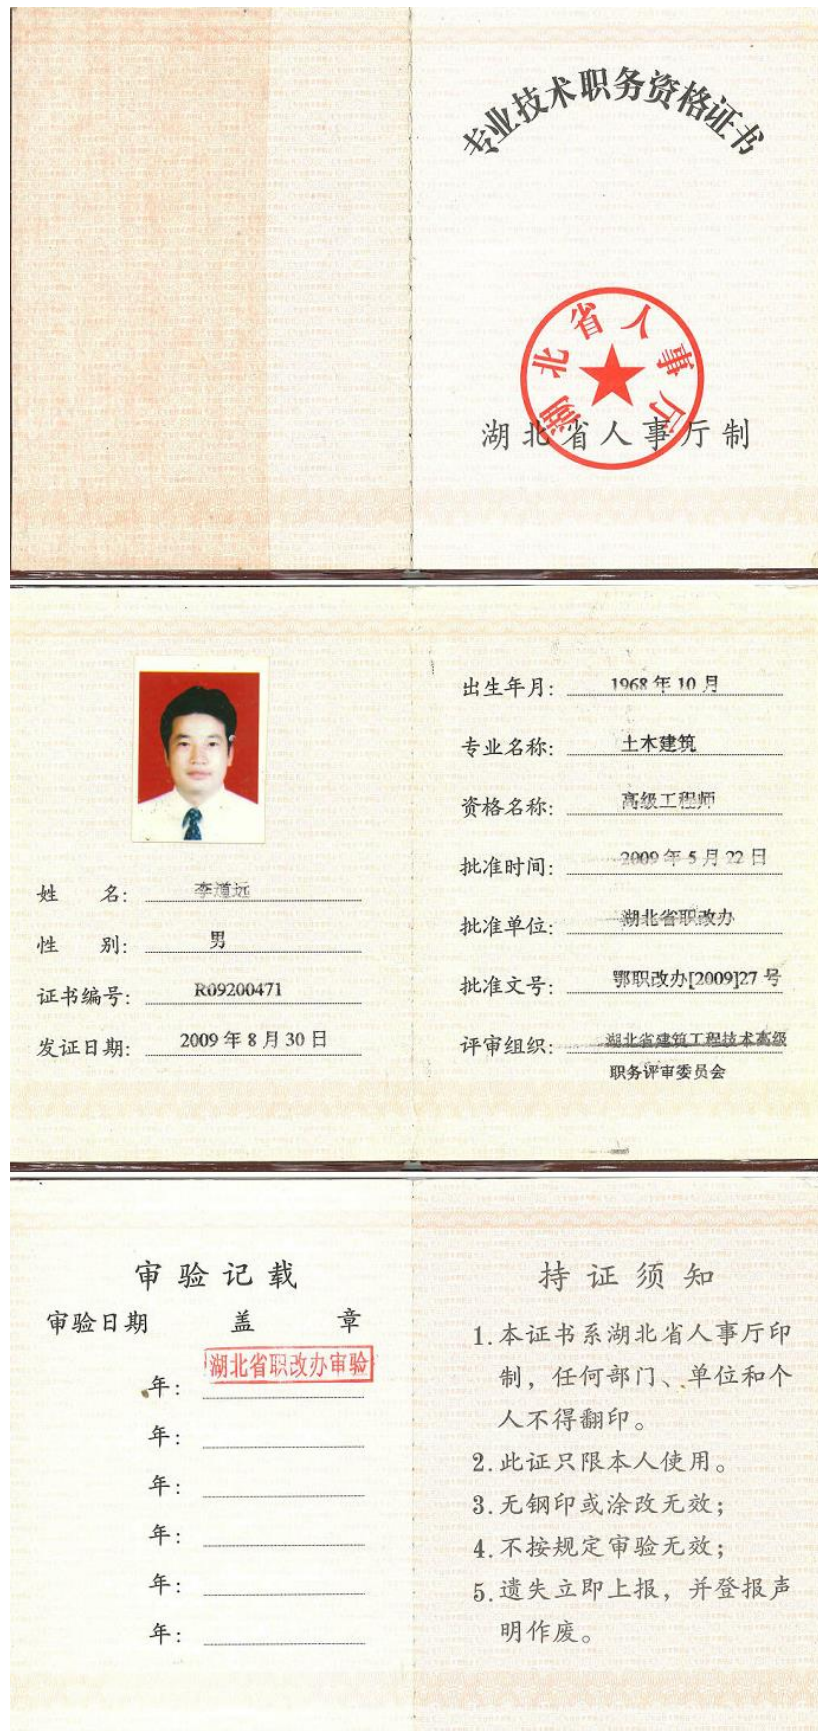 专业技术职务资格证书
湖北省人事厅
湖北省人事厅制
姓 名: 李道远
性 别: 男
证书编号: R09200471
发证日期: 2009年8月30日
出生年月: 1968年10月
专业名称: 土木建筑
资格名称: 高级工程师
批准时间: 2009年5月22日
批准单位: 湖北省职改办
批准文号: 鄂职改办[2009]27号
评审组织: 湖北省建筑工程技术高级
职务评审委员会
审验记载
审验日期 盖 章
湖北省职改办审验
年:
年:
年:
年:
年:
年:
持证须知
1.本证书系湖北省人事厅印
制，任何部门、单位和个
人不得翻印。
2.此证只限本人使用。
3.无钢印或涂改无效；
4.不按规定审验无效；
5.遗失立即上报，并登报声
明作废。